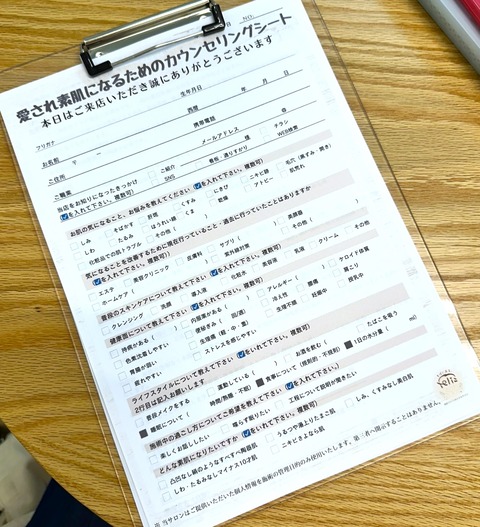 NO.
愛され素肌になるためのカウンセリングシート
本日はご来店いただき誠にありがとうございます
フリガナ 生年月日
お名前 西暦 年 月 日
ご住所 〒 − 携帯電話
ご職業 メールアドレス @
当店をお知りになったきっかけ ご紹介 様 チラシ
(☑を入れて下さい。複数可) SNS 看板・通りすがり WEB検索
お肌の気になること、お悩みを教えてください (☑を入れて下さい。複数可)
しみ そばかす 肝斑 くすみ にきび ニキビ跡 毛穴(黒ずみ・開き)
しわ たるみ ほうれい線 くま 乾燥 アトピー 肌荒れ
化粧品での肌トラブル その他( )
気になることを改善するために現在行っていること・過去に行っていたことはありますか
(☑を入れて下さい。複数可)
エステ 美容クリニック 皮膚科 サプリ( ) 美顔器
ホームケア( ) 紫外線対策 その他( )
普段のスキンケアについて教えて下さい (☑を入れて下さい。複数可)
クレンジング 洗顔 導入液 化粧水 美容液 乳液 クリーム その他
健康面について教えて下さい (☑を入れて下さい。複数可)
持病がある( ) 内服薬がある( ) アレルギー( ) ケロイド体質
色素沈着しやすい 便秘きみ( 回/週) 冷え性 腰痛 肩こり
胃腸が弱い 生理痛(軽・中・重) 生理不順 妊娠中 授乳中
疲れやすい ストレスを感じやすい
ライフスタイルについて教えて下さい (☑をいれて下さい。複数可)
2行目は記入お願いします
普段メイクをする 運動している( ) お酒を飲む( ) たばこを吸う
睡眠について( 時間/熟睡・不眠) 食事について(規則的・不規則) 1日の水分量( ml)
施術中の過ごし方についてご希望を教えて下さい (☑を入れて下さい。)
楽しくお話ししたい 喋らず眠りたい 工程について説明が聞きたい
どんな素肌になりたいですか (☑をいれて下さい。複数可)
凸凹なし絹のようなすべすべ陶器肌 うるつや湯上りたまご肌 しみ、くすみなし美白肌
しわ・たるみなしマイナス10才肌 ニキビさよなら肌
※ 当サロンはご提供いただいた個人情報を施術の管理目的のみ使用いたします。第三者へ開示することはありません。